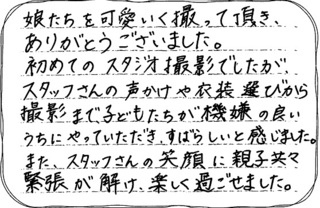 娘たちを可愛いく撮って頂き、
ありがとうございました。
初めてのスタジオ撮影でしたが、
スタッフさんの声かけや衣装選びから
撮影まで子どもたちが機嫌の良い
うちにやっていただき、すばらしいと感じました。
また、スタッフさんの笑顔に親子共々
緊張が解け、楽しく過ごせました。